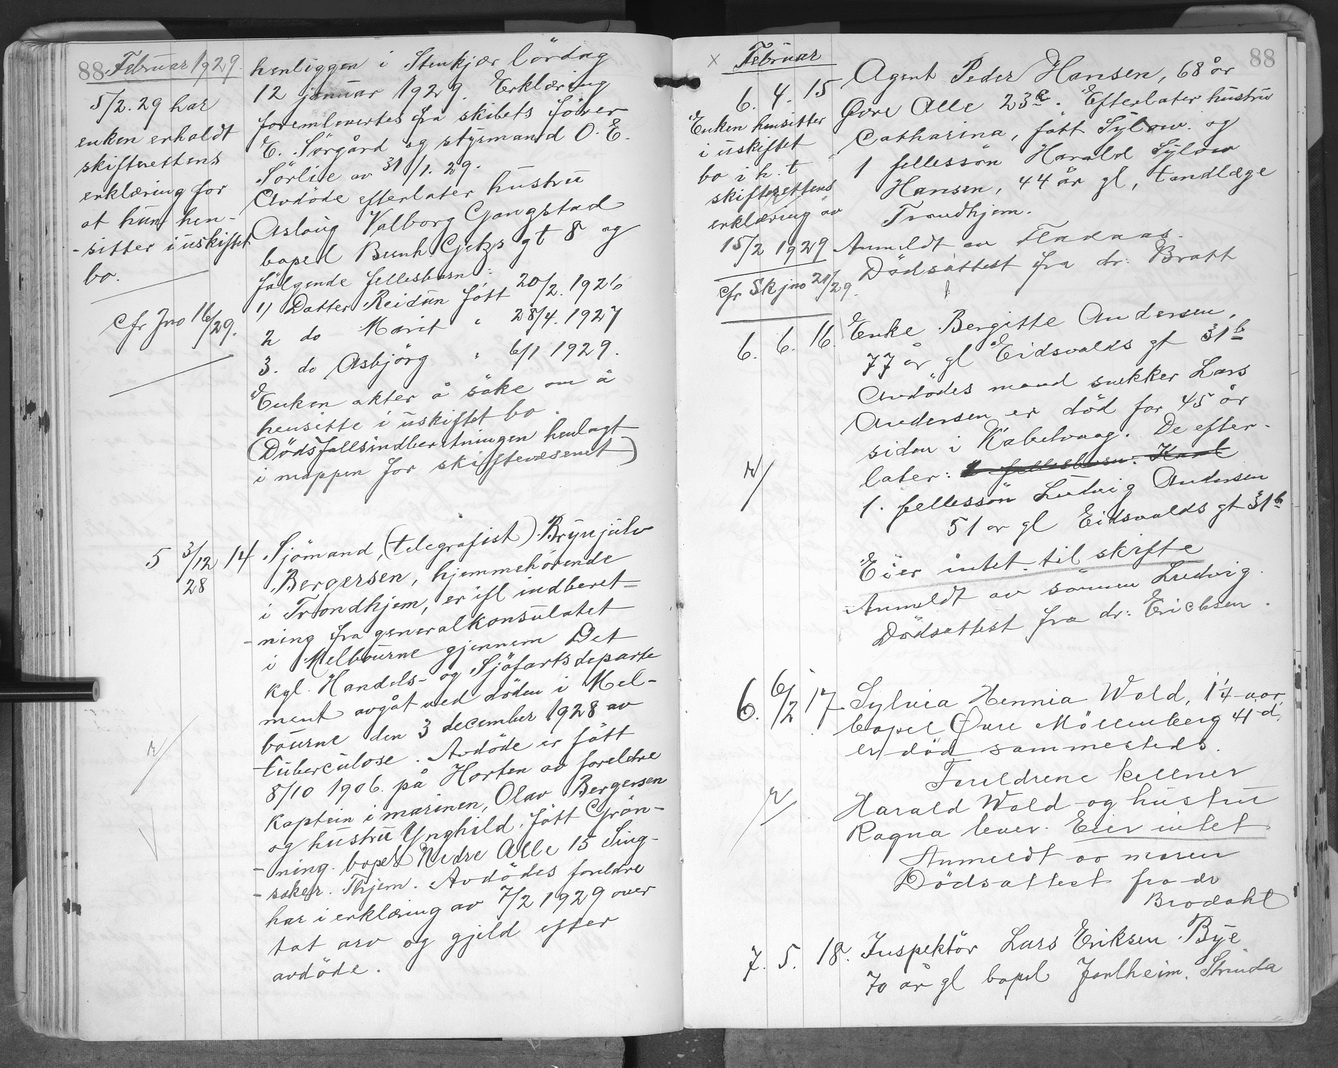 88 Februar 1929.
5/2. 29 har
enken erholdt
skifterettens
erklæring for
at hun hen-
-sitter i uskiftet
bo.
cfr Jno 16/29.
henliggen i Stenkjær lördag
12 januar 1929. Erklæring
foremlevertes fra skibets förer
E. Sørgård og styrmand O. E.
Sörlie av 31/1. 29.
Avdöde efterlater hustru
Aslaug Valborg Gangstad
bopel Bernh Getzs gt 8 og
følgende fellesbarn:
1) Datter Reidun fött 20/2. 1926
2 do Marit " 28/4. 1927
3. do Asbjörg " 6/1 1929.
Enken akter å söke om å
hensitte i uskiftet bo.
(Dödsfallsindberetningen henlagt
i mappen for skiftevæsenet)
5 3/12 28 14. Sjömand (telegrafist) Brynjulv
Bergersen, hjemmehörende
i Trondhjem, er ifl indberet-
-ning fra generalkonsulatet
i Melbourne gjennem Det
kgl. Handels- og Sjöfartsdeparte
ment avgåt ved döden i Mel-
bourne den 3 december 1928 av
tuberculose. Avdöde er fött
8/10 1906. på Horten av foreldre
kaptein i marinen, Olav Bergersen
og hustru Ynghild, fött Grön-
-ning. bopel Nedre Alle 15 Sing-
-saker. Thjem. Avdödes foreldre
har i erklæring av 7/2 1929 over
tat arv og gjeld efter
avdöde.
x Februar 88
6. 4. 15 Agent Peder Hansen, 68 år
Övre Alle 23a. Efterlater hustru
Catharina, fött Sylow. og
1 fellessön Harald Sylow
Hansen, 44 år gl, tandlæge
Trondhjem.
Anmeldt av Fladaas.
Dödsattest fra dr. Bratt
Enken hensitter
i uskiftet
bo i h. t
skifterettens
erklæring av
15/2 1929
cfr Skjno 21/29.
6. 6. 16. Enke Bergitte Andersen,
77 år gl Eidsvolds gt 31b
Avdödes mand snekker Lars
Andersen er död for 45 år
siden i Kabelvaag. De efter-
later: 1 fellesbarn. Karl
1. fellessön Ludvig Andersen
51 år gl Eidsvolds gt 31b
Eier intet til skifte
Anmeldt av sönnen Ludvig.
Dödsattest fra dr: Erichsen.
6. 6/2 17 Sylvia Hennia Wold, 14 aar
bopel Övre Möllenberg 41 d,
er död sammesteds.
Foreldrene kelner
Harald Wold og hustru
Ragna lever. Eier intet
Anmeldt av moren
Dödsattest fra dr
Brodahl
7. 5. 18. Inspektör Lars Eriksen Bye
70 år gl bopel Jarlheim, Strinda